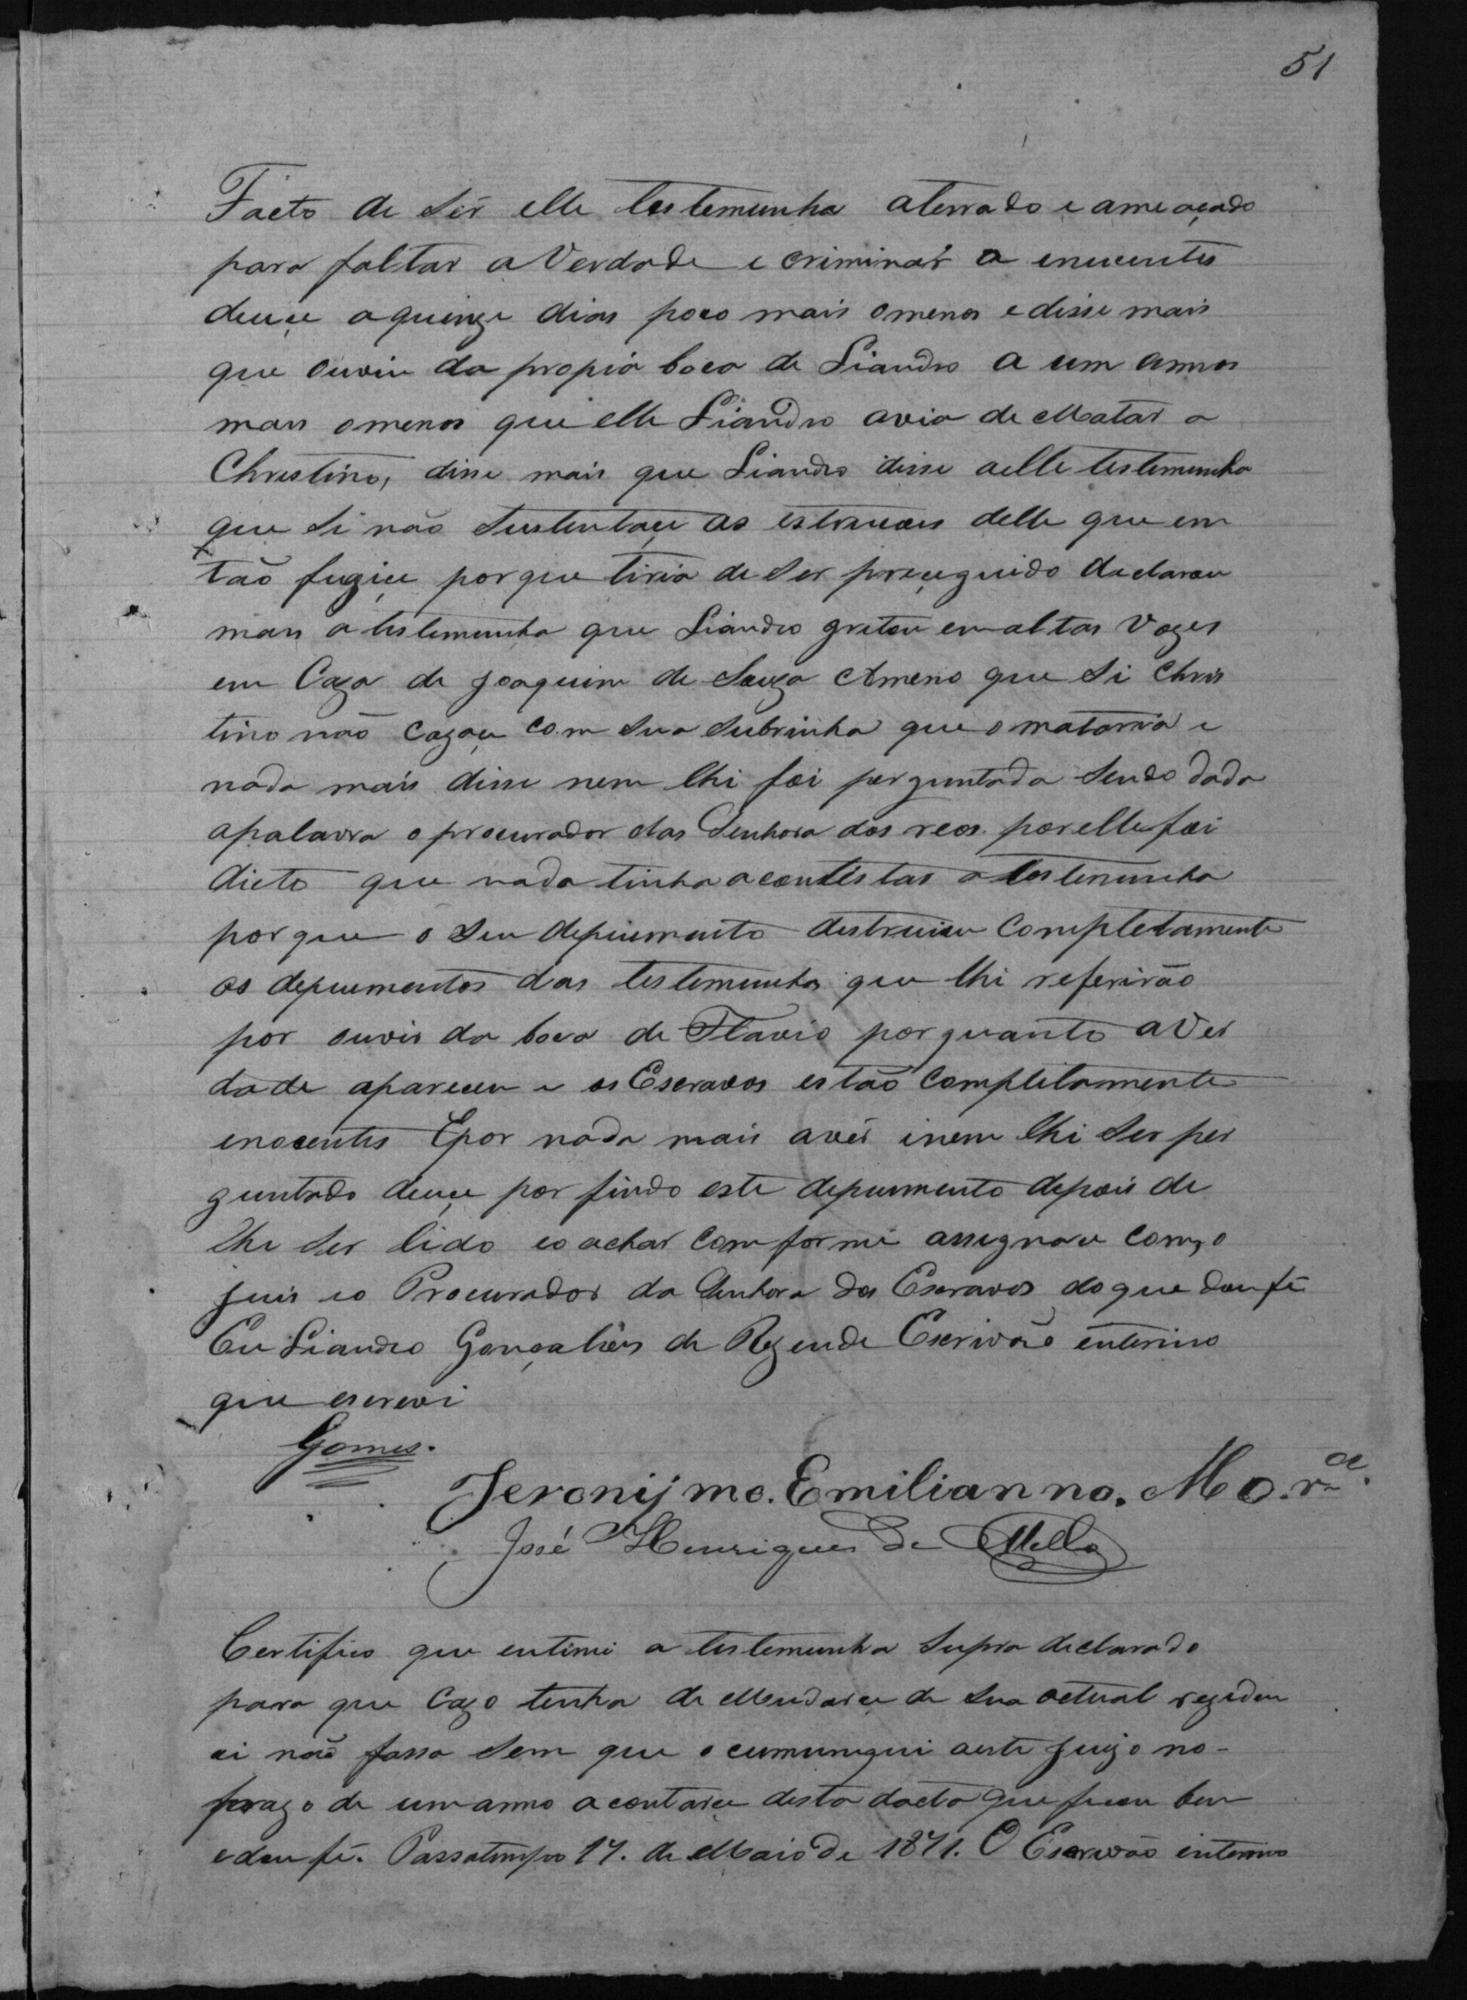 51
Facto de Ser elle testemunha aterrado e ameaçado
para faltar a Verdade e criminár a enucentes
deuçe a quinze dias poco mais omenos e disse mais
que ouviu da propia boca de Liandro a um annos
mais omenos que elle Liandro avia de Matar a
Christino, disse mais que Liandro disse aelle testemunha
que Si não Sustentaçe as delle que em
tão fugiçe porque tiria de Ser preçeguido declarou
mais a testemunha que Liandro gritou em altas Vozes
em Caza de Joaquim de Souza Ameno que Si Chris
tino não cazaçe com Sua Subrinha que o mataria e
nada mais disse nem lhi foi perguntada Sendo dada
apalavra o procurador das Senhora dos reos. por elle foi
dicto que nada tinha a contéstar a testemunha
porque o Seu depuimento destruiu Completamente
os depuementos das testemunhas que lhi referirão
por ouvir da boca de Flavio porquanto a Ver
dade apareceu e os Escravos estão Completamente
enocentes E por nada mais avér inem lhi Ser per
guntado deuçe por findo este depuimento depois de
lhe Ser lido eo achar comforme assegnou com, o
juis eo Procurador da Senhora dos Escravos do que dou fé
Eu Liandro Gonçalves de Rezende Escrivão enterino
que escrevi
Gomes.
Jeronijmo. Emilianno. Mo.rª.
José Henriques de Mello
Certifico que entimei a testemunha Supra declarado
para que Cazo tenha de Mudarçe de Sua actual reziden
ci não fassa Sem que o cumunequi aeste juizo no-
prazo de um anno a contarçe desta dacta que ficou bem
e dou fé. Passatempo 17. de Maio de 1871. O Escrivão interino